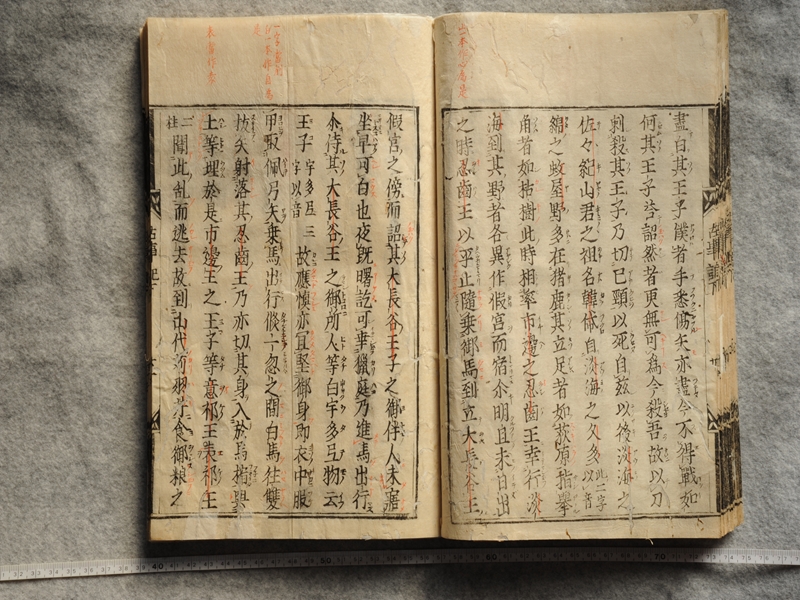 盡白其王子僕者手悉傷矢亦盡今不得戰如
何其王子答詔然者更無可爲今殺吾故以刀
刺殺其王子乃切己頸以死自茲以後淡海之
佐々紀山君之祖名韓帒白淡海之久多以音此二字
綿之蚊屋野多在猪鹿其立足者如荻原指擧
角者如枯樹此時相率市邊之忍齒王幸行淡
海到其野者各異作假宮而宿尒明旦未日出
之時忍齒王以平止隨乗御馬到立大長谷王
假宮之傍而詔其大長谷王子之御伴人未寤
坐早可白也夜既曙訖可幸獵庭乃進馬出行
尒侍其大長谷王之御所人等白宇多弖物云
王子 宇多弖三字以音 故應愼亦宜堅御身即衣中服
甲取佩弓矢乗馬出行倐忽之間自馬往雙
拔矢射落其忍齒王乃亦切其身入於馬樎與
土等埋於是市邊王之王子等意祁王袁祁王
二柱聞此乱而逃去故到山代苅羽井食御粮之